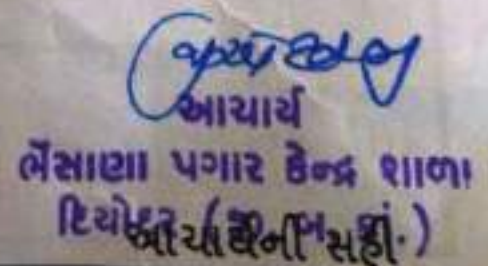 આચાર્ય
ભેંસાણા પગાર કેન્દ્ર શાળા
દિયોદર (જી. બ. કાં.)
આચાર્યની સહી.